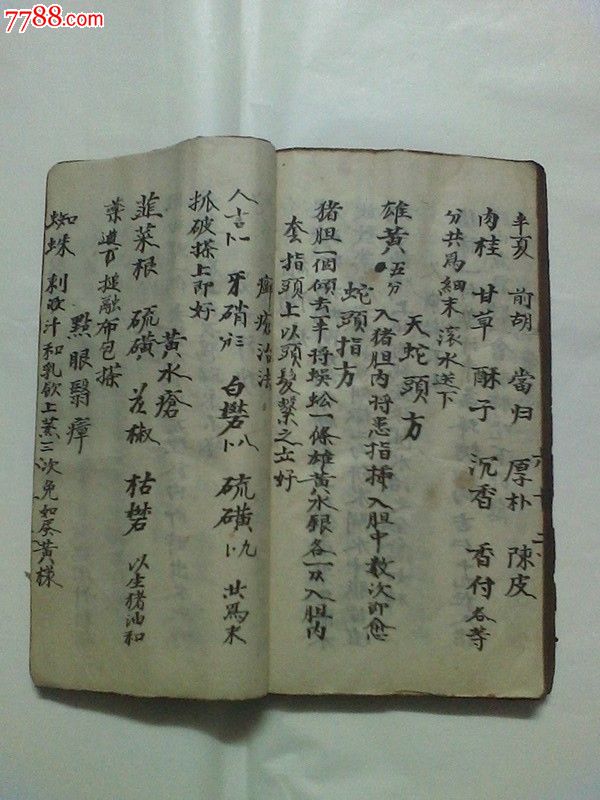 7788.com
半夏 前胡 當归 厚朴 陳皮
肉桂 甘草 酥子 沉香 香付 各等
分共為細末 滾水送下
天蛇頭方
雄黃 五分 入猪胆内将患指揷入胆中数次即愈
蛇頭指方
猪胆一個傾去半将蜈蚣一條雄黃水銀各一 入胆内
套指頭上以頭髮繫之立好
癬瘡治法
人言 牙硝 白礬 硫磺 共為末
抓破搽上即好
黃水瘡
韮菜根 硫磺 花椒 枯礬 以生猪油和
葉 搥融布包搽
點眼翳瘴
蜘蛛 刺取汁和乳飲上蒸三次免如 黃様